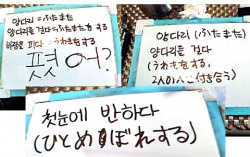 양다리 = ふたまた
양다리를 걸다 = ふたまたをする
바람을 피다 = うわきをする
폈어?
양다리 (ふたまた)
양다리를 걸다
(うわきをする,
2人の人と付き合う)
첫눈에 반하다
(ひとめぼれする)